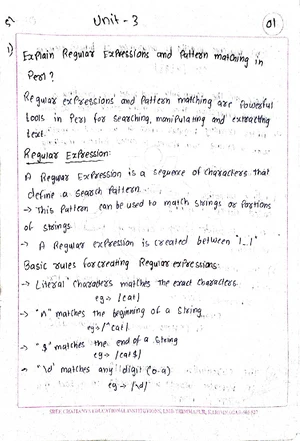 Unit - 3
01
1) Explain Regular Expressions and Pattern matching in
Perl ?
Regular expressions and pattern matching are powerful
tools in Perl for searching, manipulating and extracting
text.
Regular Expression:
A Regular Expression is a sequence of characters that
define a search pattern.
→ This pattern can be used to match strings or portions
of strings.
→ A Regular expression is created between "/_/"
Basic rules for creating Regular expressions:
→ Literal characters matches the exact characters.
eg → /cat/
→ "^" matches the beginning of a string
eg → /^cat/
→ "$" matches the end of a string
eg → /cat$/
→ "\d" matches any digit (0-9)
eg → /\d/